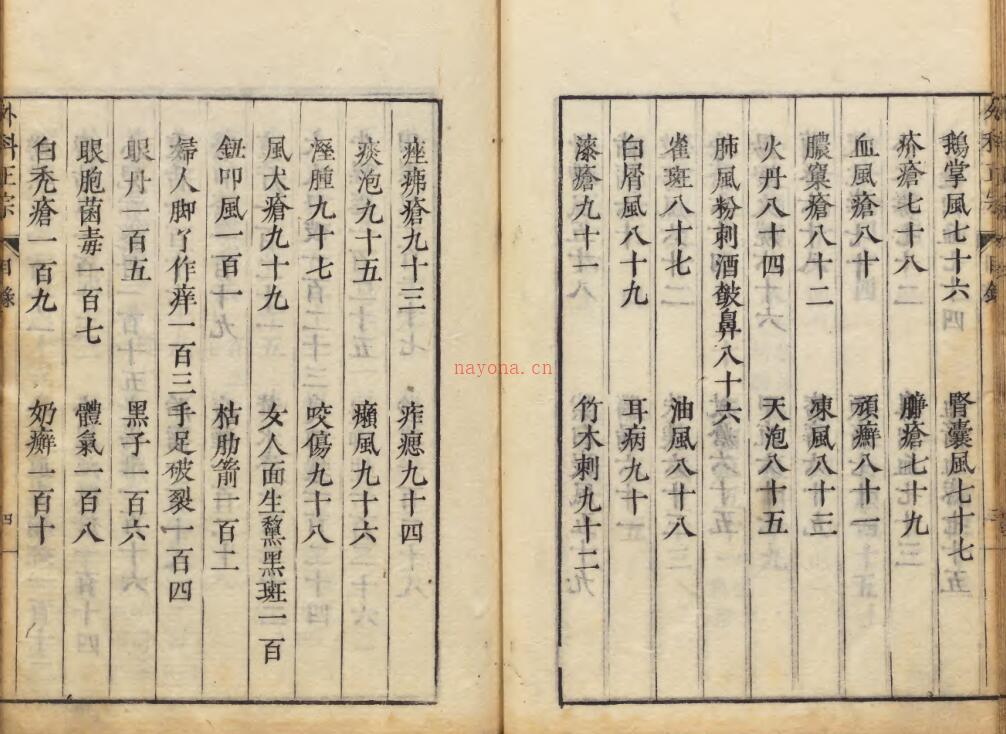 鵝掌風七十六
腎囊風七十七
疥瘡七十八
臁瘡七十九
血風瘡八十
頑癬八十一
膿窠瘡八十二
凍風八十三
火丹八十四
天泡八十五
肺風粉刺酒皶鼻八十六
雀斑八十七
油風八十八
白屑風八十九
耳病九十
漆瘡九十一
竹木刺九十二
痤痱瘡九十三
痄腮九十四
痰泡九十五
癩風九十六
溼腫九十七
咬傷九十八
風犬瘡九十九
女人面生黧黑斑一百
鈕叩風一百一
枯肋箭一百二
婦人脚了作痒一百三
手足破裂一百四
眼丹一百五
黑子一百六
眼胞菌毒一百七
體氣一百八
白禿瘡一百九
奶癬一百十
外科正宗
目錄
四
nayona.cn